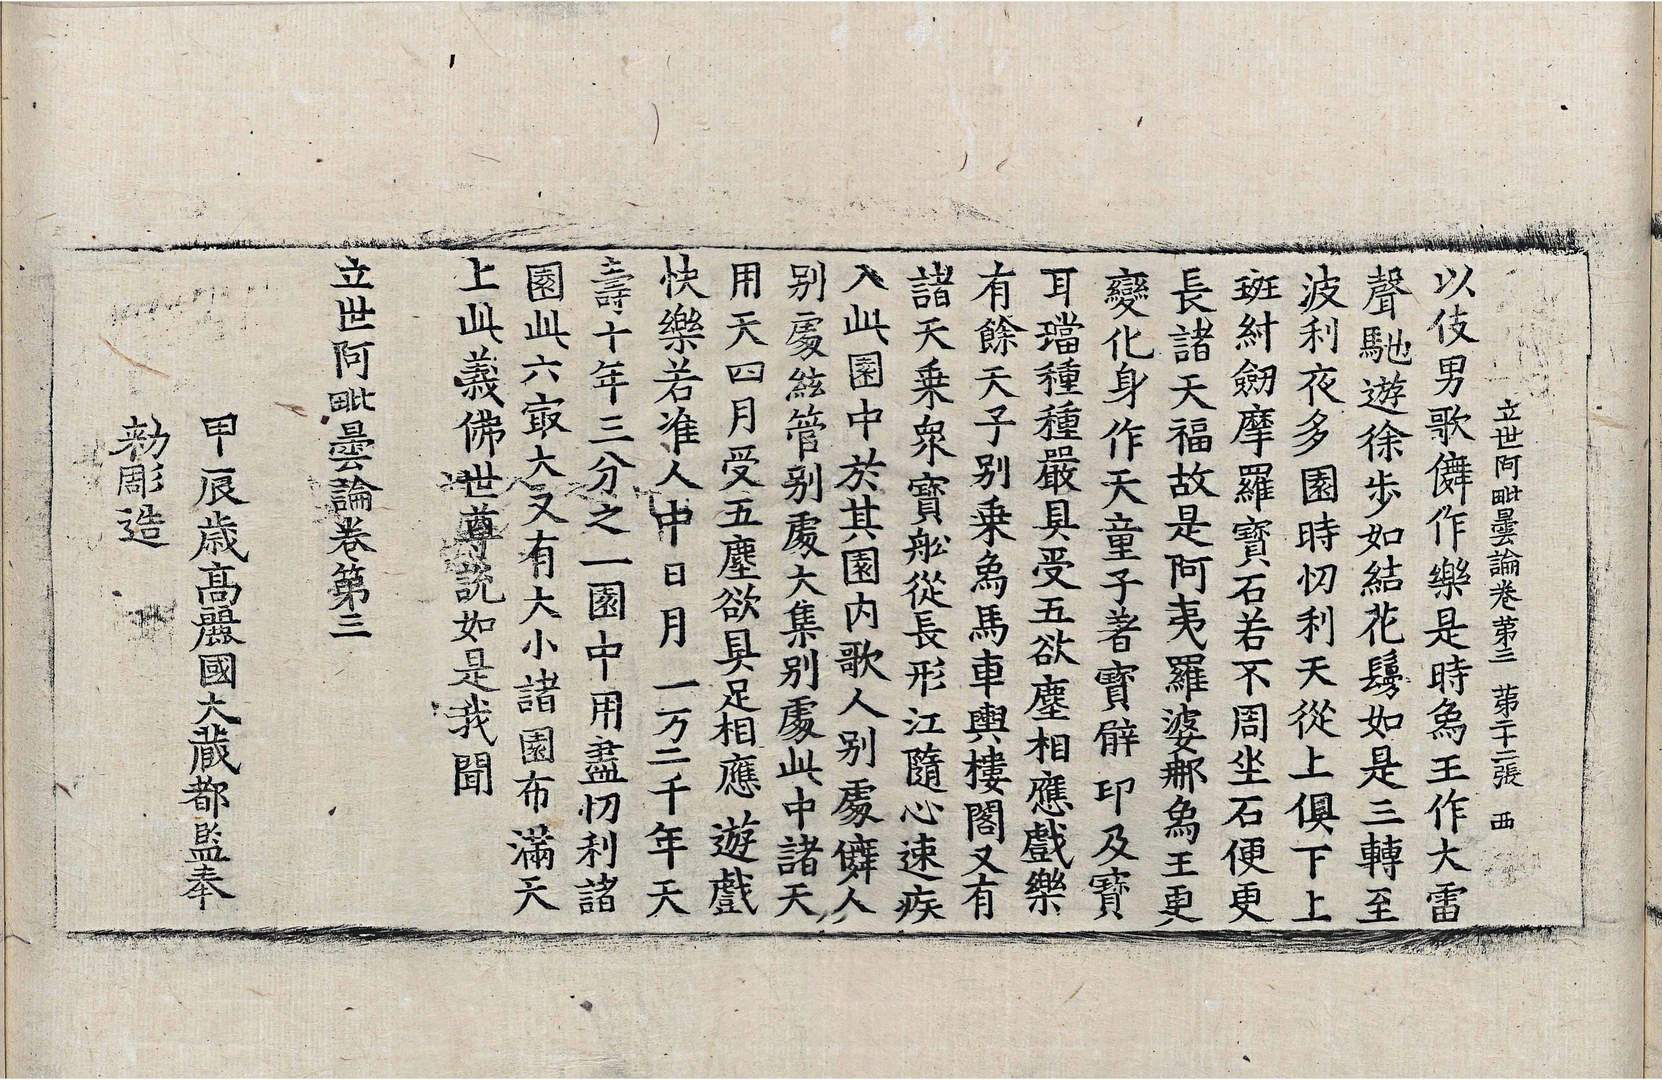 立世阿毗曇論卷第三 第二十二張 西
以伎男歌儛作樂是時象王作大雷
聲馳遊徐步如結花鬘如是三轉至
波利夜多園時忉利天從上俱下上
斑紂劒摩羅寶石若不周坐石便更
長諸天福故是阿夷羅婆郍象王更
變化身作天童子著寶辟印及寶
耳璫種種嚴具受五欲塵相應戲樂
有餘天子别乗象馬車輿樓閣又有
諸天乗衆寶舩從長形江隨心速疾
入此園中於其園内歌人别處儛人
别處絃管别處大集别處此中諸天
用天四月受五塵欲具足相應遊戲
快樂若准人中日月一万二千年天
壽十年三分之一園中用盡忉利諸
園此六㝡大又有大小諸園布滿天
上此義佛世尊説如是我聞
立世阿毗曇論卷第三
甲辰歳高麗國大藏都監奉
勑彫造